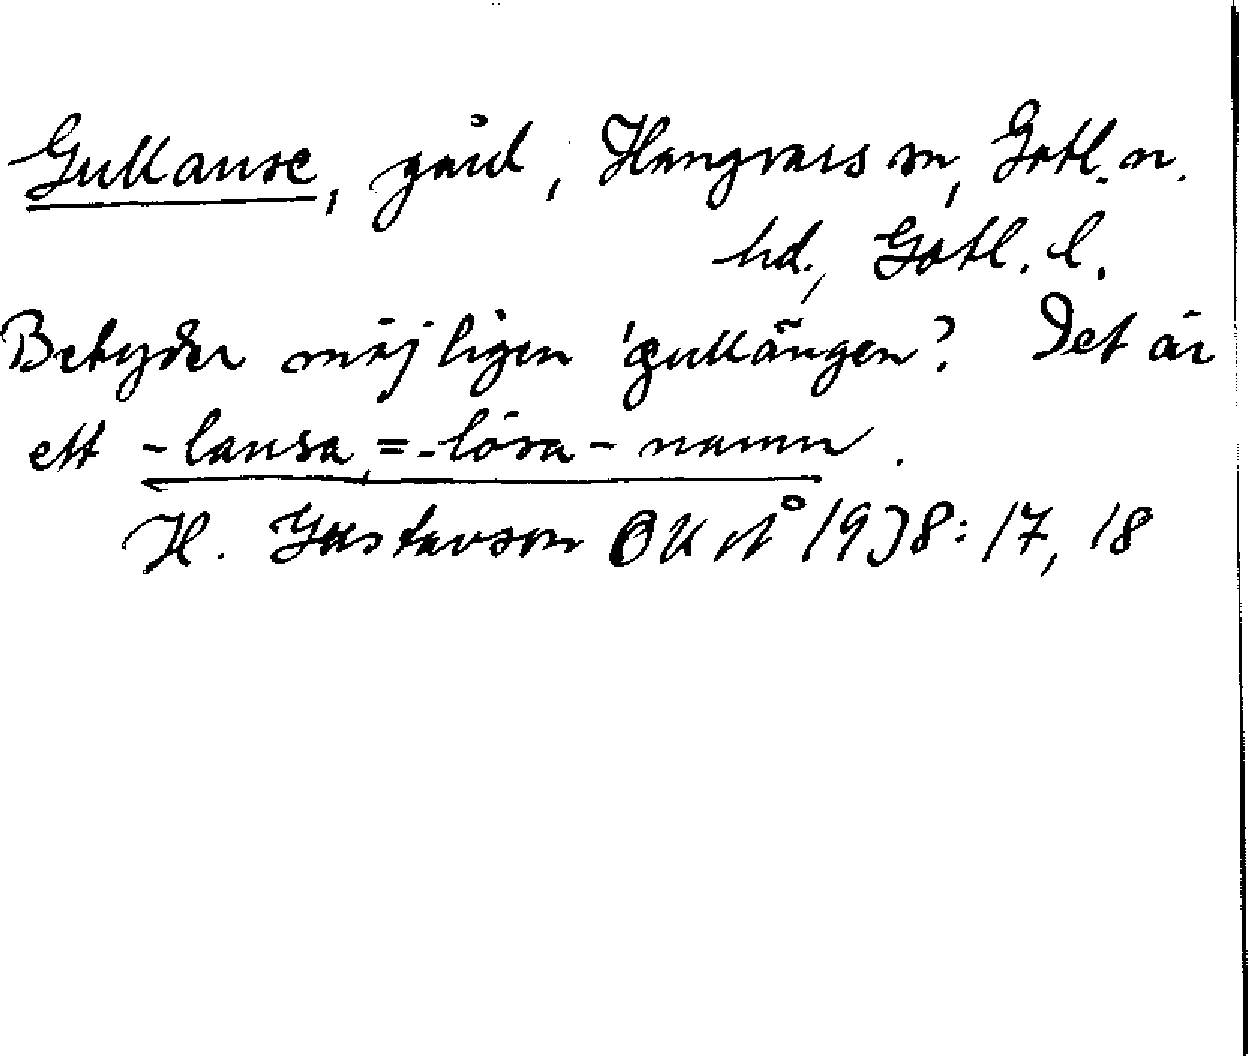 Gullause, gård, Hangvars sn, Gotl. n.
hd., Gotl. l.
Betyder möjligen 'gullängen? Det är
ett -lausa = -lösa-namn.
H. Gustavson OKNÅ 1938: 17, 18